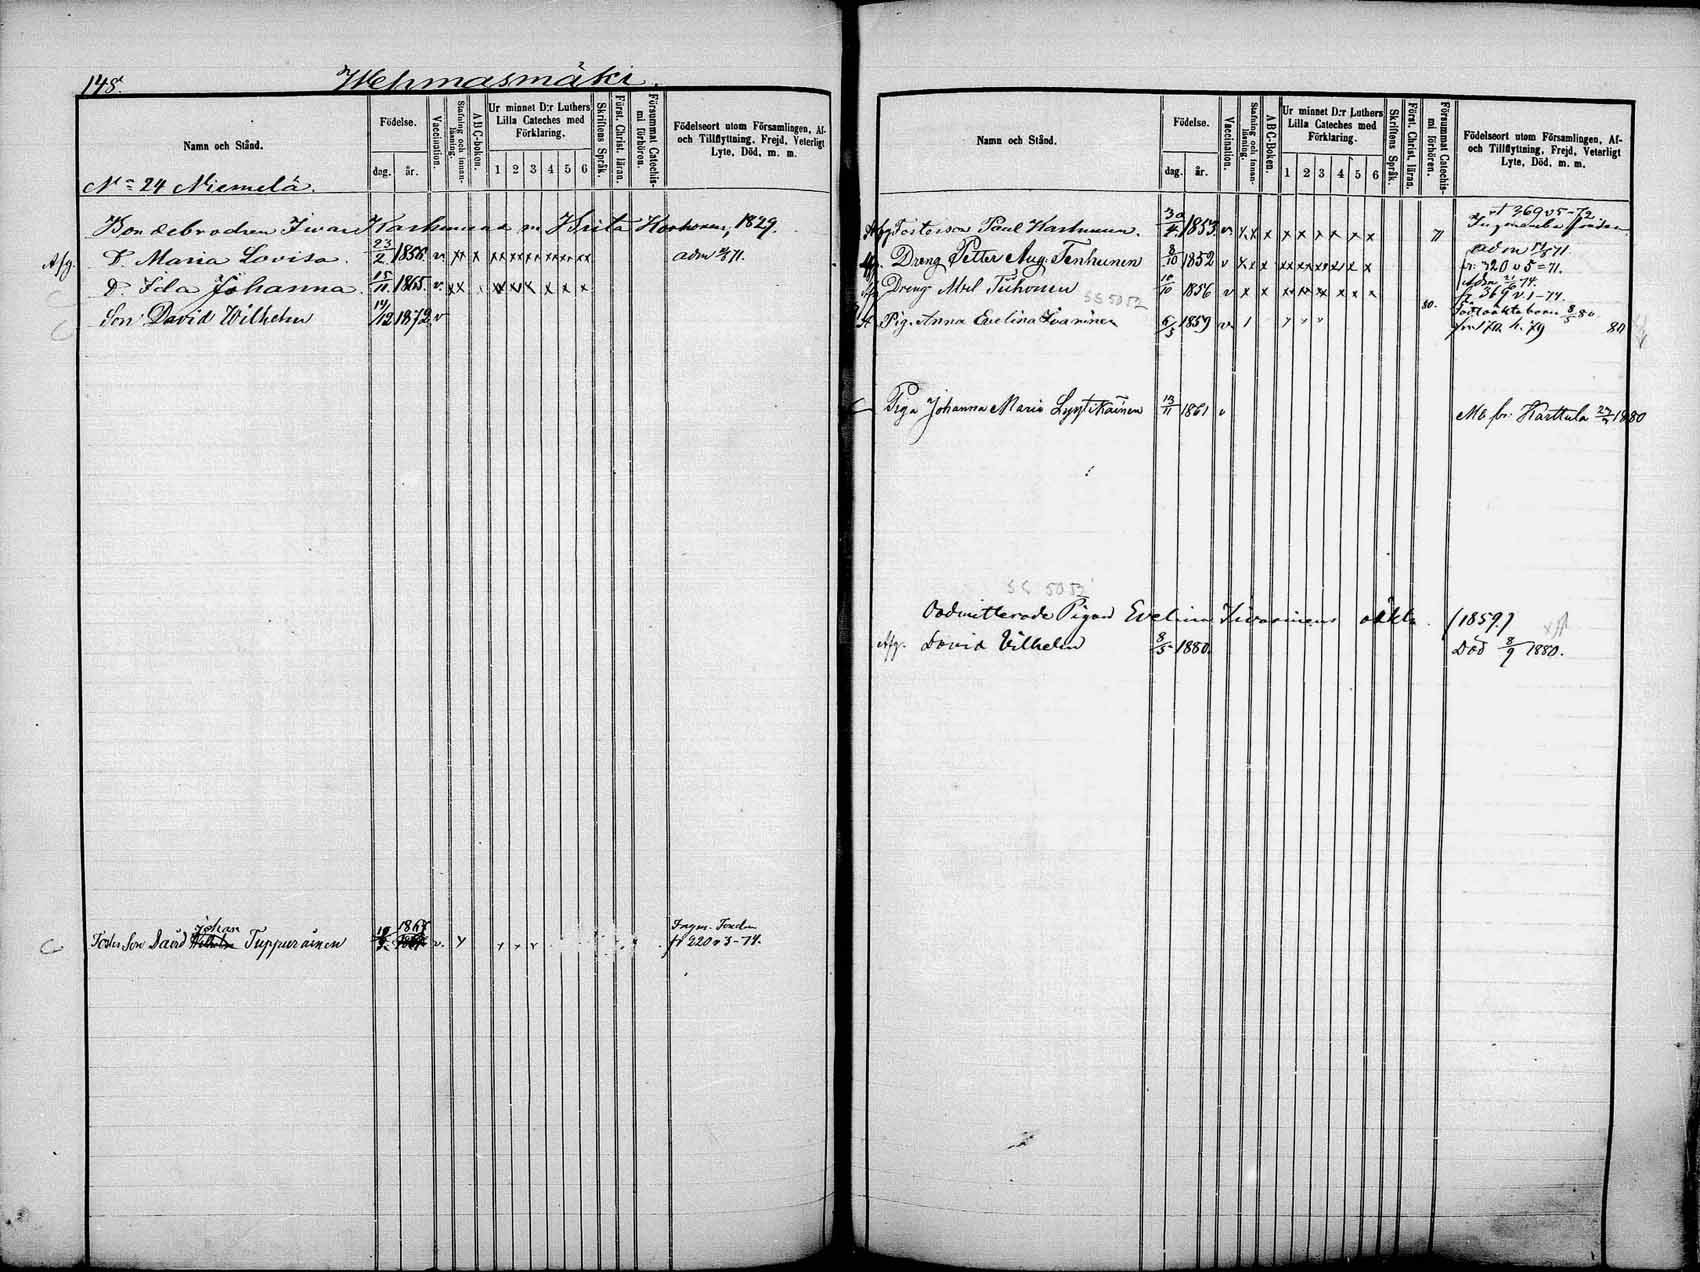 148.
Wehmasmäki.
Namn och Stånd.
Födelse.
dag. år.
Vaccination.
Stafning och innan-läsning.
ABC-boken.
Ur minnet D:r Luthers Lilla Cateches med Förklaring.
1 2 3 4 5 6
Skriftens Språk.
Först. Christ. läran.
Försummat Catechis-mi förhören.
Födelseort utom Församlingen, Af- och Tillflyttning, Frejd, Veterligt Lyte, Död, m. m.
No 24 Niemelä.
Bondebrodren Iwar Karhunens m Brita Korhonen, 1829.
Afg. D. Maria Lovisa. 23/2 1856. v. x x x x x x x x x
D. Ida Johanna 15/11 1865. v. x x x x x x x x
Son David Wilhelm 14/12 1872 v
Foster Son David Wilhelm Johan Tuppurainen 1865 v.
fr 220 v 3-74.
Namn och Stånd.
Födelse.
dag. år.
Vaccination.
Stafning och innan-läsning.
ABC-Boken.
Ur minnet D:r Luthers Lilla Cateches med Förklaring.
1 2 3 4 5 6
Skriftens Språk.
Först. Christ. läran.
Försummat Catechis-mi förhören.
Födelseort utom Församlingen, Af- och Tillflyttning, Frejd, Veterligt Lyte, Död, m. m.
369 v 5-72.
Afg Fosterson Paul Karhunen. 30/4 1853. v. x x x x x x x x x 71
Dreng Petter Aug. Tenhunen 8/10 1852 v x x x x x x x x x
fr. 320 v 5-71.
Dreng Abel Tiihonen 10/10 1856 v x x x x x x x x
fr. 369 v. 1-74.
SS 50 52
Pig. Anna Evelina Ivarinen 6/5 1859 v. 80.
fr 170 h. 79 80
Piga Johanna Maria Lyytikäinen 13/11 1861 v
Mb fr. Karttula 1880
SS 50 52
Oadmitterade Pigan Evelina Iwarinens oäkta (1859.)
Afg. David Vilhelm 8/5 1880.
Död 8/9 1880.